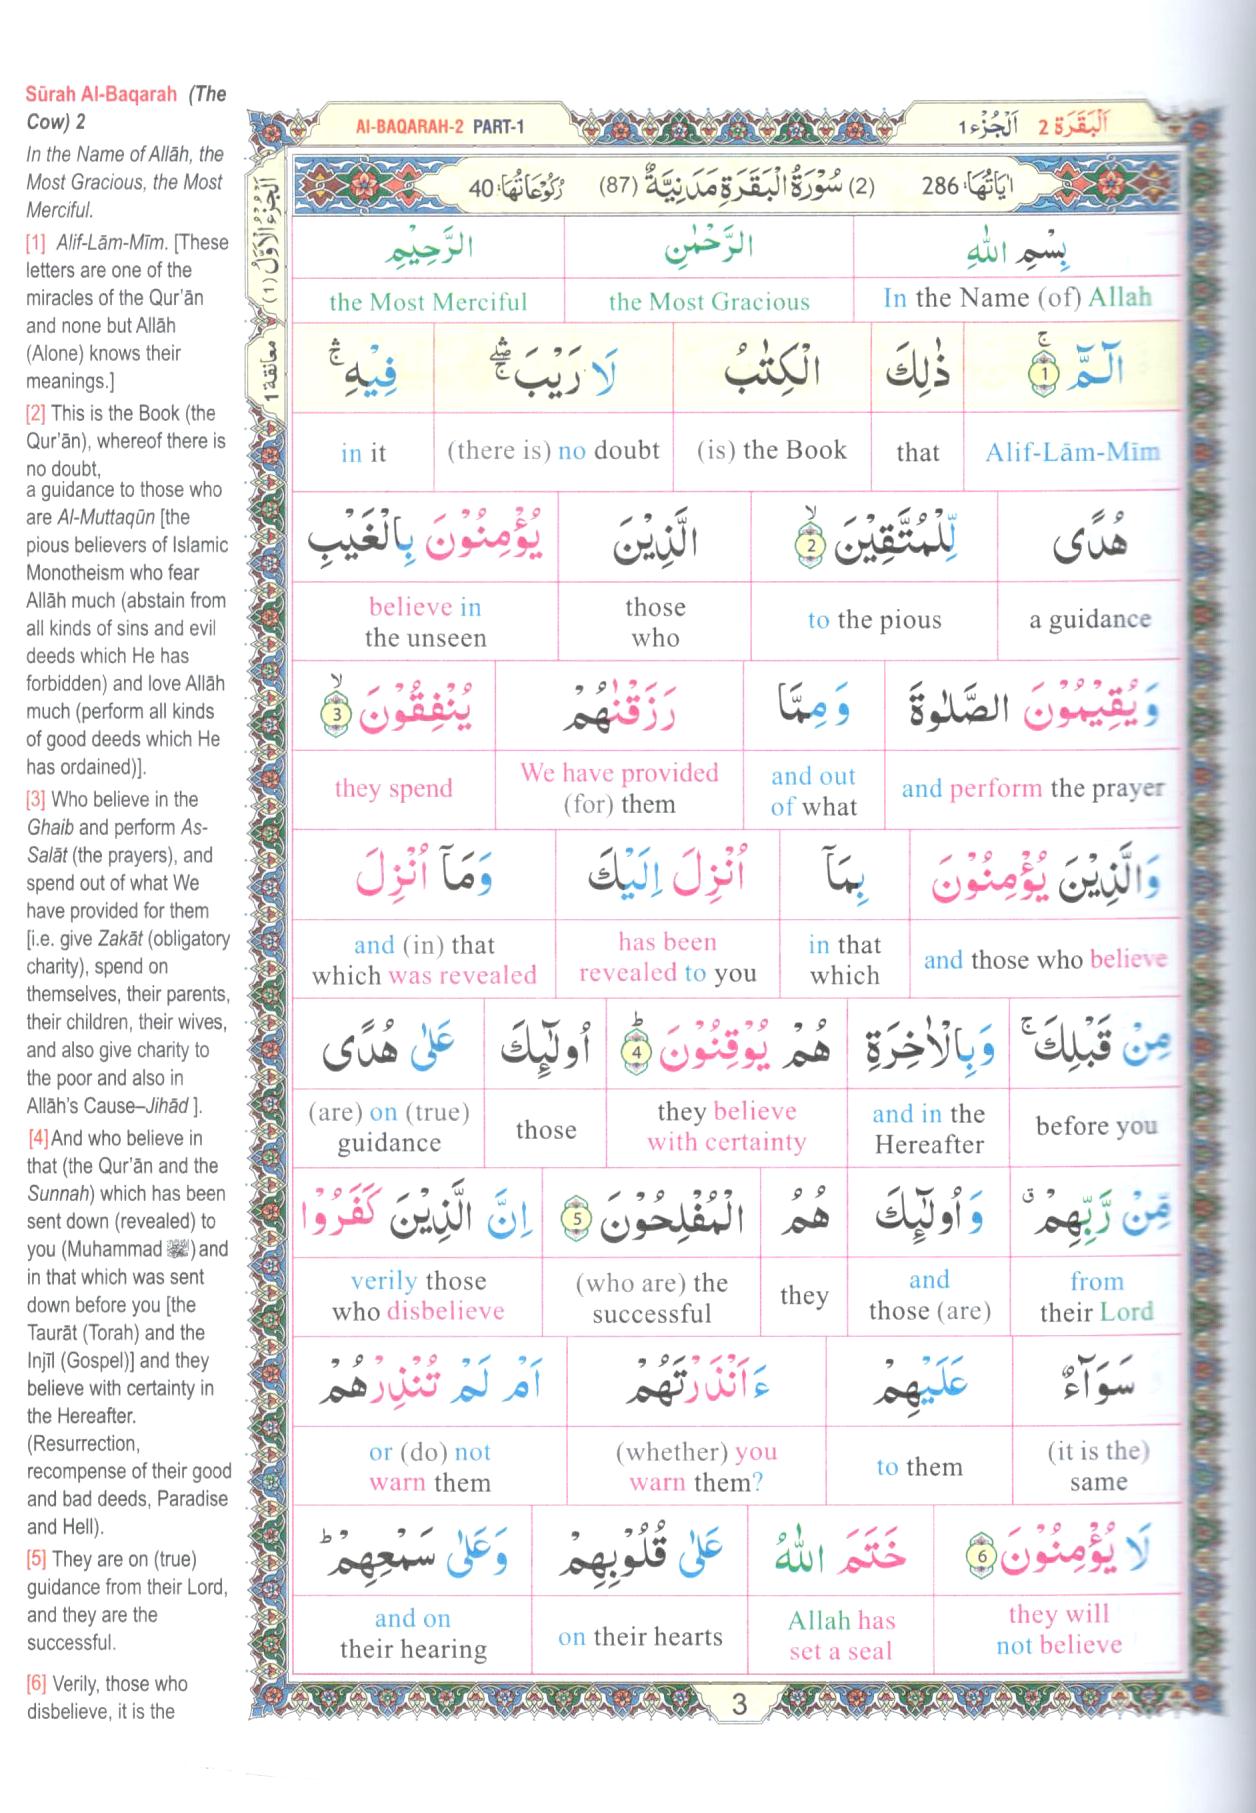 Sūrah Al-Baqarah (The
Cow) 2
In the Name of Allāh, the
Most Gracious, the Most
Merciful.
[1] Alif-Lām-Mīm. [These
letters are one of the
miracles of the Qur’ān
and none but Allāh
(Alone) knows their
meanings.]
[2] This is the Book (the
Qur’ān), whereof there is
no doubt,
a guidance to those who
are Al-Muttaqūn [the
pious believers of Islamic
Monotheism who fear
Allāh much (abstain from
all kinds of sins and evil
deeds which He has
forbidden) and love Allāh
much (perform all kinds
of good deeds which He
has ordained)].
[3] Who believe in the
Ghaib and perform As-
Salāt (the prayers), and
spend out of what We
have provided for them
[i.e. give Zakāt (obligatory
charity), spend on
themselves, their parents,
their children, their wives,
and also give charity to
the poor and also in
Allāh’s Cause–Jihād ].
[4]And who believe in
that (the Qur’ān and the
Sunnah) which has been
sent down (revealed) to
you (Muhammad ﷺ) and
in that which was sent
down before you [the
Taurāt (Torah) and the
Injīl (Gospel)] and they
believe with certainty in
the Hereafter.
(Resurrection,
recompense of their good
and bad deeds, Paradise
and Hell).
[5] They are on (true)
guidance from their Lord,
and they are the
successful.
[6] Verily, those who
disbelieve, it is the
اَلْجُزْءُ الْاَوَّلُ (١)
معانقة ١
AI-BAQARAH-2 PART-1
اَلْبَقَرَة 2 اَلْجُزْء 1
اٰيَاتُهَا: 286 (2) سُوْرَةُ الْبَقَرَةِ مَدَنِيَّةٌ (87) رُكُوْعَاتُهَا: 40
بِسْمِ اللّٰهِ الرَّحْمٰنِ الرَّحِيْمِ
In the Name (of) Allah the Most Gracious the Most Merciful
الٓمّٓ ۚ 1 ذٰلِكَ الْكِتٰبُ لَا رَيْبَ ۛۖ فِيْهِ ۛۚ
Alif-Lām-Mīm that (is) the Book (there is) no doubt in it
هُدًى لِّلْمُتَّقِيْنَ ۙ 2 الَّذِيْنَ يُؤْمِنُوْنَ بِالْغَيْبِ
a guidance to the pious those who believe in the unseen
وَيُقِيْمُوْنَ الصَّلٰوةَ وَمِمَّا رَزَقْنٰهُمْ يُنْفِقُوْنَ ۙ 3
and perform the prayer and out of what We have provided (for) them they spend
وَالَّذِيْنَ يُؤْمِنُوْنَ بِمَآ اُنْزِلَ اِلَيْكَ وَمَآ اُنْزِلَ
and those who believe in that which has been revealed to you and (in) that which was revealed
مِنْ قَبْلِكَ ۚ وَبِالْاٰخِرَةِ هُمْ يُوْقِنُوْنَ ؕ 4 اُولٰٓئِكَ عَلٰى هُدًى
before you and in the Hereafter they believe with certainty those (are) on (true) guidance
مِّنْ رَّبِّهِمْ ۗ وَاُولٰٓئِكَ هُمُ الْمُفْلِحُوْنَ 5 اِنَّ الَّذِيْنَ كَفَرُوْا
from their Lord and those (are) they (who are) the successful verily those who disbelieve
سَوَآءٌ عَلَيْهِمْ ءَاَنْذَرْتَهُمْ اَمْ لَمْ تُنْذِرْهُمْ
(it is the) same to them (whether) you warn them? or (do) not warn them
لَا يُؤْمِنُوْنَ 6 خَتَمَ اللّٰهُ عَلٰى قُلُوْبِهِمْ وَعَلٰى سَمْعِهِمْ ؕ
they will not believe Allah has set a seal on their hearts and on their hearing
3